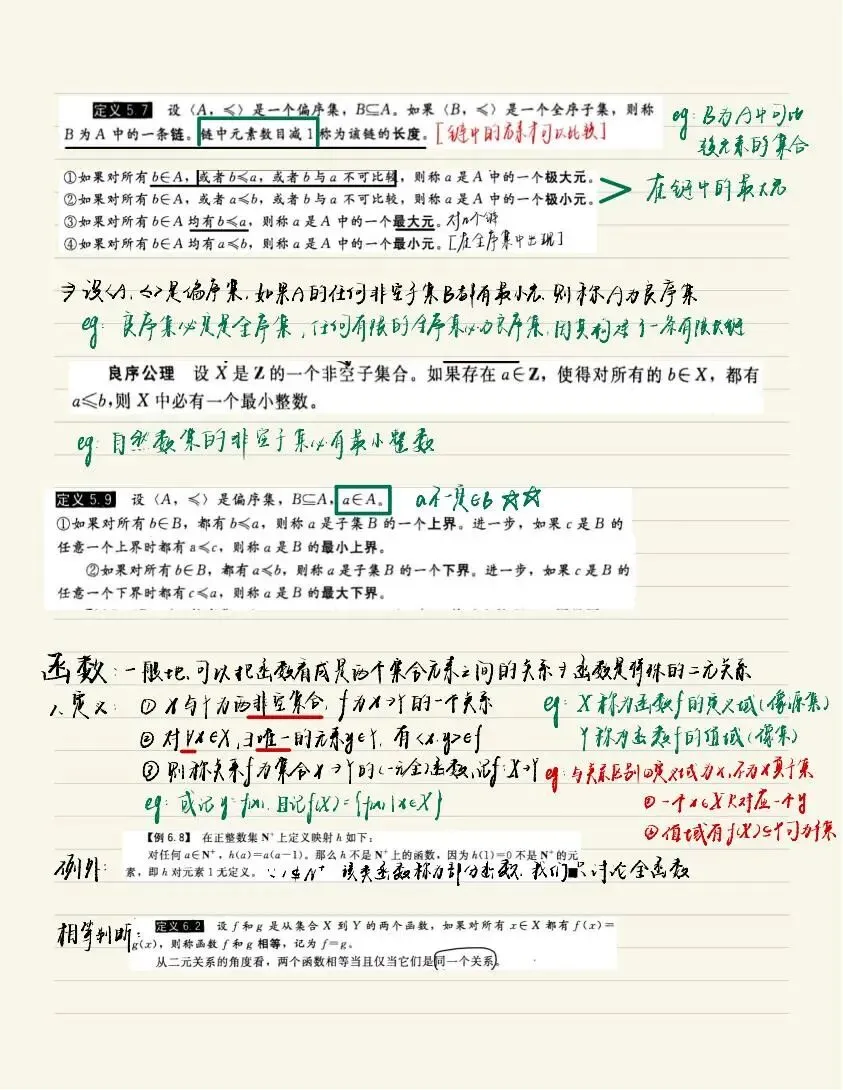 定义 5.7 设〈A,≤〉是一个偏序集,B⊆A。如果〈B,≤〉是一个全序子集,则称
B 为 A 中的一条链。链中元素数目减 1 称为该链的长度。[链中的元素才可以比较]
eg: B为A中可比
较元素的集合
①如果对所有 b∈A,或者 b≤a,或者 b 与 a 不可比较,则称 a 是 A 中的一个极大元。
②如果对所有 b∈A,或者 a≤b,或者 b 与 a 不可比较,则称 a 是 A 中的一个极小元。
在链中的最大元
③如果对所有 b∈A 均有 b≤a,则称 a 是 A 中的一个最大元。
④如果对所有 b∈A 均有 a≤b,则称 a 是 A 中的一个最小元。[在全序集中出现]
⇒ 设<A,≤>是偏序集,如果A的任何非空子集B都有最小元,则称A为良序集
eg: 良序集必定是全序集,任何有限的全序集必为良序集,因其构建了一条有限长链
良序公理 设 X 是 Z 的一个非空子集合。如果存在 a∈Z,使得对所有的 b∈X,都有
a≤b,则 X 中必有一个最小整数。
eg: 自然数集的非空子集必有最小整数
定义 5.9 设〈A,≤〉是偏序集,B⊆A,a∈A。 a不一定∈B ☆☆
①如果对所有 b∈B,都有 b≤a,则称 a 是子集 B 的一个上界。进一步,如果 c 是 B 的
任意一个上界时都有 a≤c,则称 a 是 B 的最小上界。
②如果对所有 b∈B,都有 a≤b,则称 a 是子集 B 的一个下界。进一步,如果 c 是 B 的
任意一个下界时都有 c≤a,则称 a 是 B 的最大下界。
函数:一般地,可以把函数看成是两个集合元素之间的关系⇒函数是特殊的二元关系
1.定义: ① X与Y为两非空集合,f为X→Y的一个关系
eg: X称为函数f的定义域(像源集)
② 对∀x∈X,∃唯一的元素y∈Y,有<x,y>∈f
Y称为函数f的值域(像集)
③ 则称关系f为集合X→Y的(一元全)函数,记f:X→Y
eg: 与关系区别①定义域为X,不为X真子集
eg: 或记y=f(x),且记f(X)={f(x)|x∈X}
②一个x∈X只对应一个y
③值域有f(X)⊆Y可为子集
【例 6.8】 在正整数集 N⁺上定义映射 h 如下:
对任何 a∈N⁺,h(a)=a(a-1)。那么 h 不是 N⁺上的函数,因为 h(1)=0 不是 N⁺的元
例外: 素,即 h 对元素 1 无定义。 该类函数称为部分函数,我们只讨论全函数
相等判断: 定义 6.2 设 f 和 g 是从集合 X 到 Y 的两个函数,如果对所有 x∈X 都有 f(x)=
g(x),则称函数 f 和 g 相等,记为 f=g。
从二元关系的角度看,两个函数相等当且仅当它们是同一个关系。